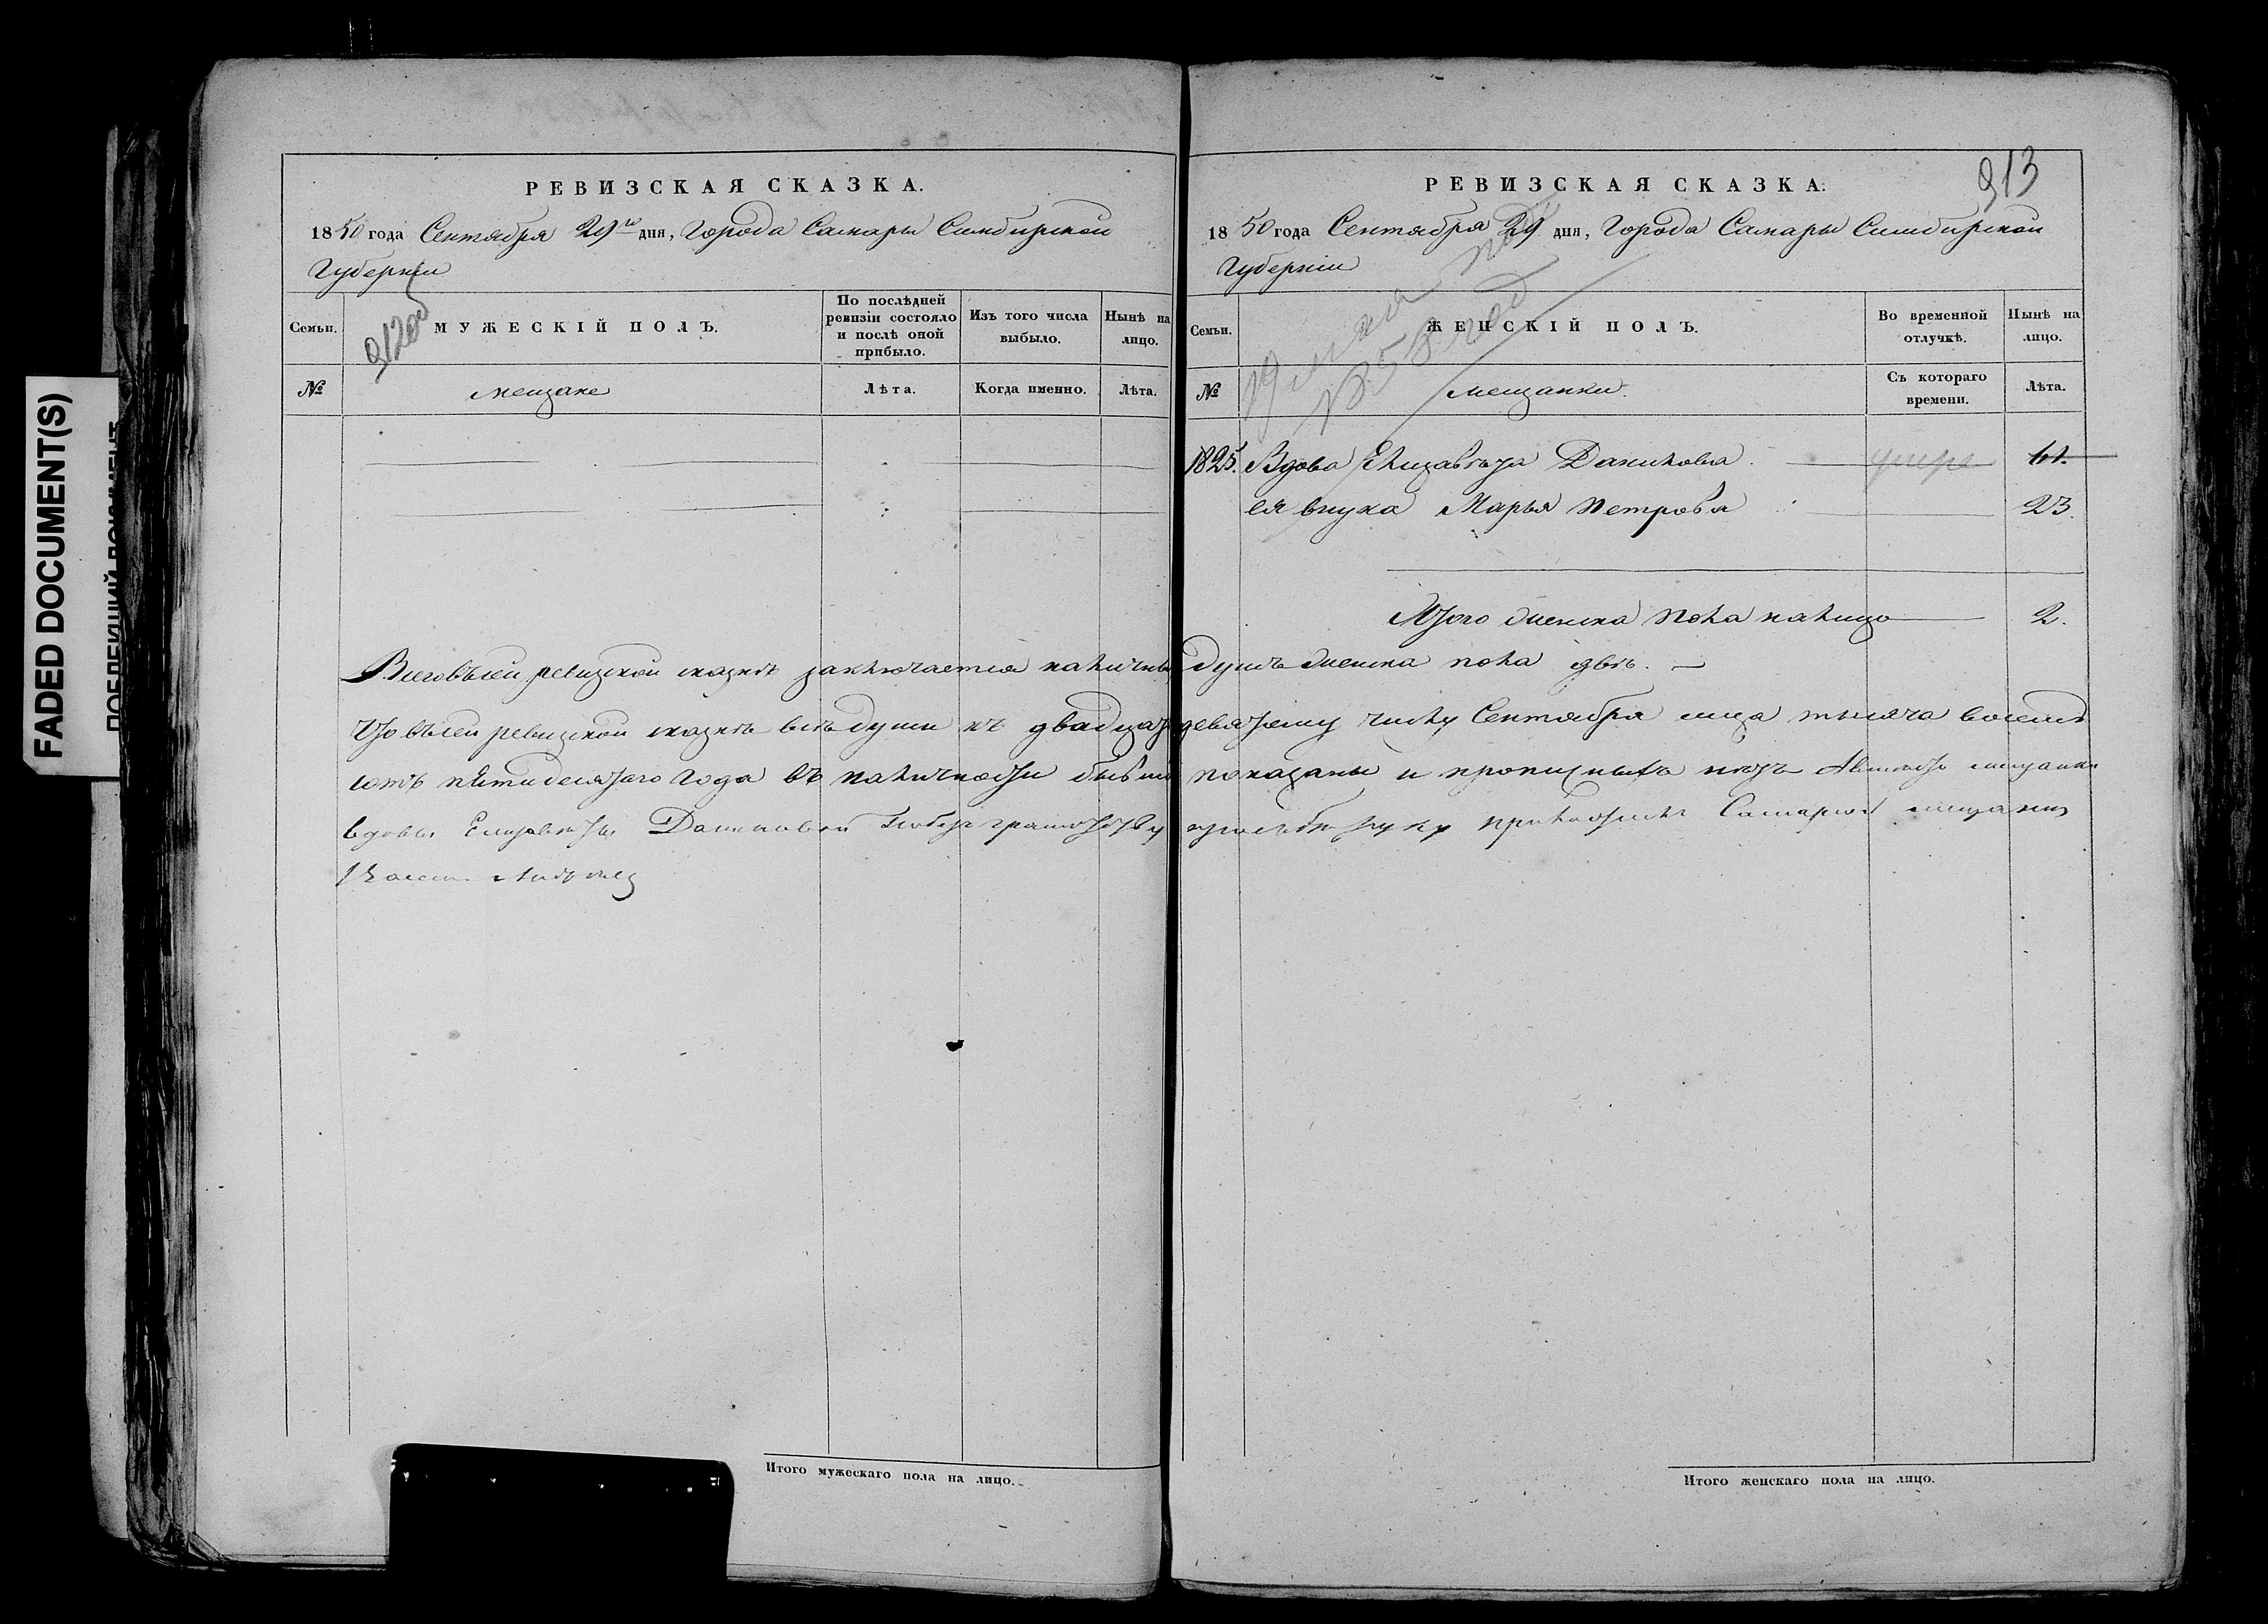 FADED DOCUMENT(S)
РЕВИЗСКАЯ СКАЗКА.
1850 года Сентября 29го дня, Города Самары Симбирской
Губернии
912об
Семьи.
МУЖЕСКІЙ ПОЛЪ.
По послѣдней ревизіи состояло и послѣ оной прибыло.
Изъ того числа выбыло.
Нынѣ на лицо.
№
мещане
Лѣта.
Когда именно.
Лѣта.
Итого мужескаго пола на лицо.
913
РЕВИЗСКАЯ СКАЗКА.
1850 года Сентября 29 дня, Города Самары Симбирской
Губерніи
1858 год
Семьи.
ЖЕНСКІЙ ПОЛЪ.
Во временной отлучкѣ.
Нынѣ на лицо.
№
мещанки.
Съ котораго времени.
Лѣта.
1825. Вдова Елизавета Данилова умерла 61.
ея внука Марья Петрова 23.
Итого женска пола налицо 2.
Всего въ сей ревизской сказкѣ заключается наличныхъ душъ женска пола двѣ.
Что въ сей ревизской сказкѣ всѣ души къ двадцать девятому числу Сентября мца тысяча восемь
сотъ пятидесятаго года въ наличности бывшіе показаны и прописныхъ нѣтъ мещанки
вдовы Елизаветы Даниловой
Итого женскаго пола на лицо.